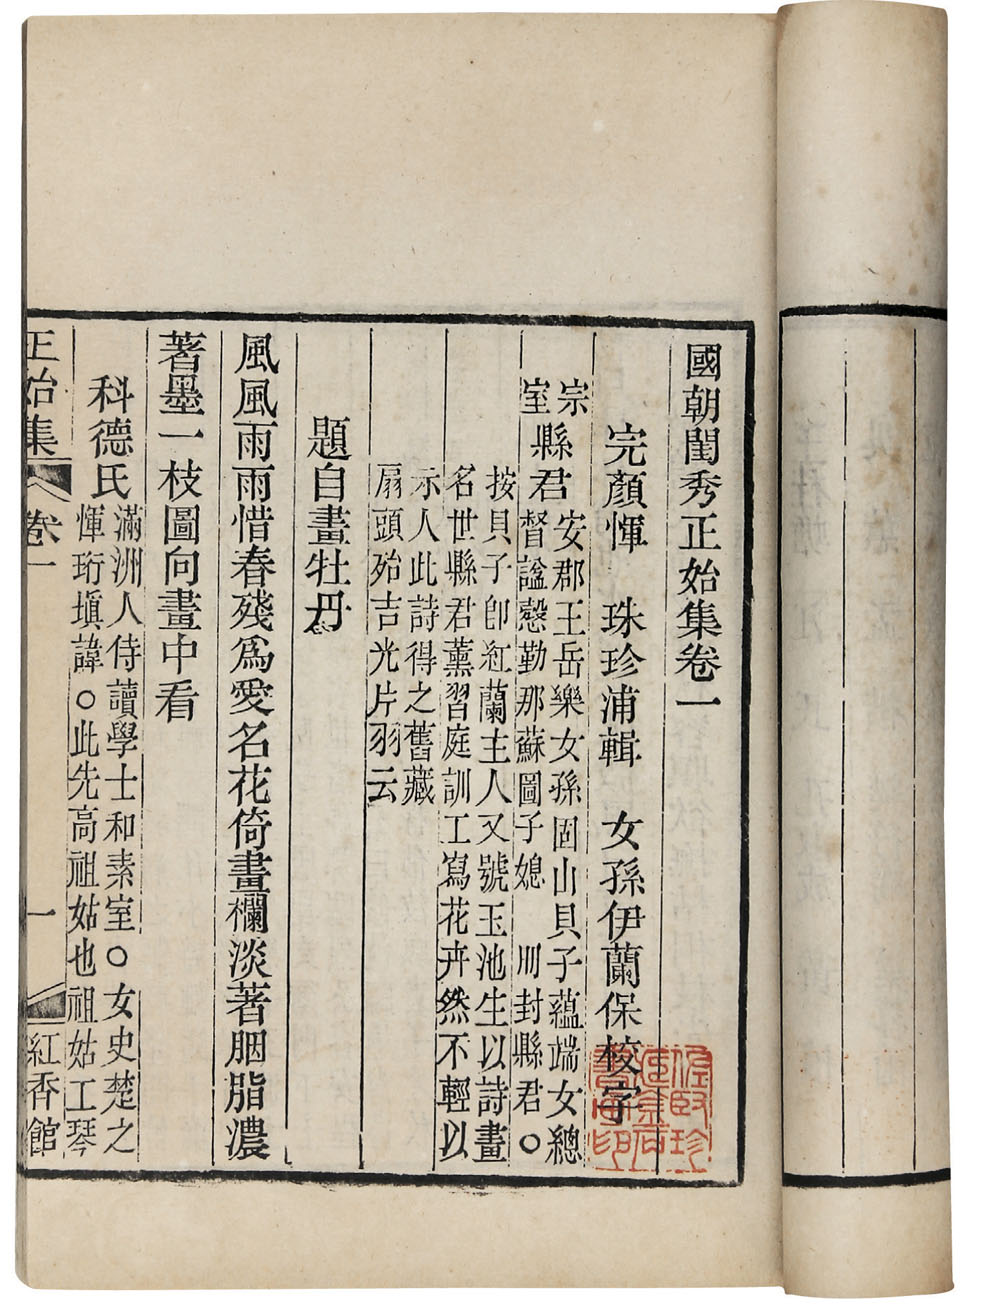 國朝閨秀正始集卷一
完顏惲 珠珍浦輯 女孫伊蘭保校字
宗室縣君
安郡王岳樂女孫固山貝子蘊端女總
督諡慤勤那蘇圖子媳 卌封縣君○
按貝子卽紅蘭主人又號玉池生以詩畫
名世縣君薰習庭訓工寫花卉然不輕以
示人此詩得之舊藏
扇頭殆吉光片羽云
題自畫牡丹
風風雨雨惜春殘爲愛名花倚畫欄淡著胭脂濃
著墨一枝圖向畫中看
科德氏
滿洲人侍讀學士和素室○女史楚之
惲珩塡諱○此先高祖姑也祖姑工琴
正始集 卷一 一 紅香館